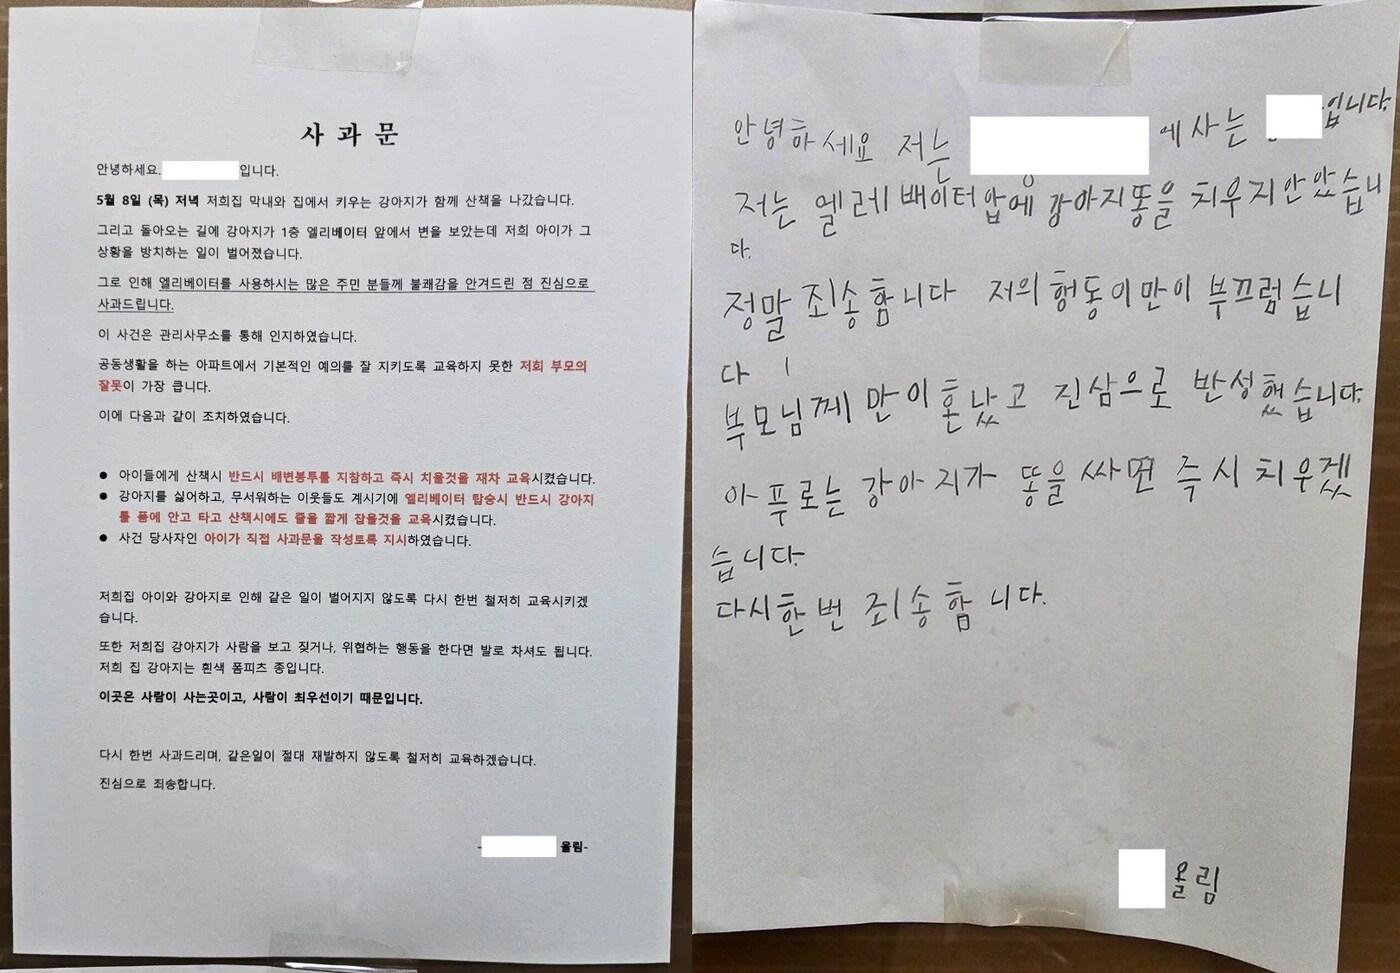 사 과 문
안녕하세요. 입니다.
5월 8일 (목) 저녁 저희집 막내와 집에서 키우는 강아지가 함께 산책을 나갔습니다.
그리고 돌아오는 길에 강아지가 1층 엘리베이터 앞에서 변을 보았는데 저희 아이가 그
상황을 방치하는 일이 벌어졌습니다.
그로 인해 엘리베이터를 사용하시는 많은 주민 분들께 불쾌감을 안겨드린 점 진심으로
사과드립니다.
이 사건은 관리사무소를 통해 인지하였습니다.
공동생활을 하는 아파트에서 기본적인 예의를 잘 지키도록 교육하지 못한 저희 부모의
잘못이 가장 큽니다.
이에 다음과 같이 조치하였습니다.
● 아이들에게 산책시 반드시 배변봉투를 지참하고 즉시 치울것을 재차 교육시켰습니다.
● 강아지를 싫어하고, 무서워하는 이웃들도 계시기에 엘리베이터 탑승시 반드시 강아지
를 품에 안고 타고 산책시에도 줄을 짧게 잡을것을 교육시켰습니다.
● 사건 당사자인 아이가 직접 사과문을 작성토록 지시하였습니다.
저희집 아이와 강아지로 인해 같은 일이 벌어지지 않도록 다시 한번 철저히 교육시키겠
습니다.
또한 저희집 강아지가 사람을 보고 짖거나, 위협하는 행동을 한다면 발로 차셔도 됩니다.
저희 집 강아지는 흰색 폼피츠 종입니다.
이곳은 사람이 사는곳이고, 사람이 최우선이기 때문입니다.
다시 한번 사과드리며, 같은일이 절대 재발하지 않도록 철저히 교육하겠습니다.
진심으로 죄송합니다.
- 올림-
안녕하세요 저는 에 사는 입니다.
저는 엘레베이터 앞에 강아지똥을 치우지 안았습니
다.
정말 죄송합니다 저의 행동이 만이 부끄럽습니
다
부모님께 만이 혼났고 진심으로 반성했습니다.
아푸로는 강아지가 똥을 싸면 즉시 치우겠
습니다.
다시한번 죄송합니다.
올림